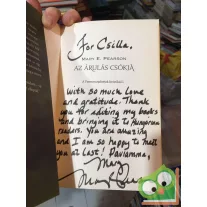 For Csilla,
MARY E. PEARSON
AZ ÁRULÁS CSÓKJA
With so much love
and gratitude. Thank
you for editing my books
and bringing it to Hungarian
readers. You are amazing
and I am so happy to meet
you at last! Paviamma,
Mary